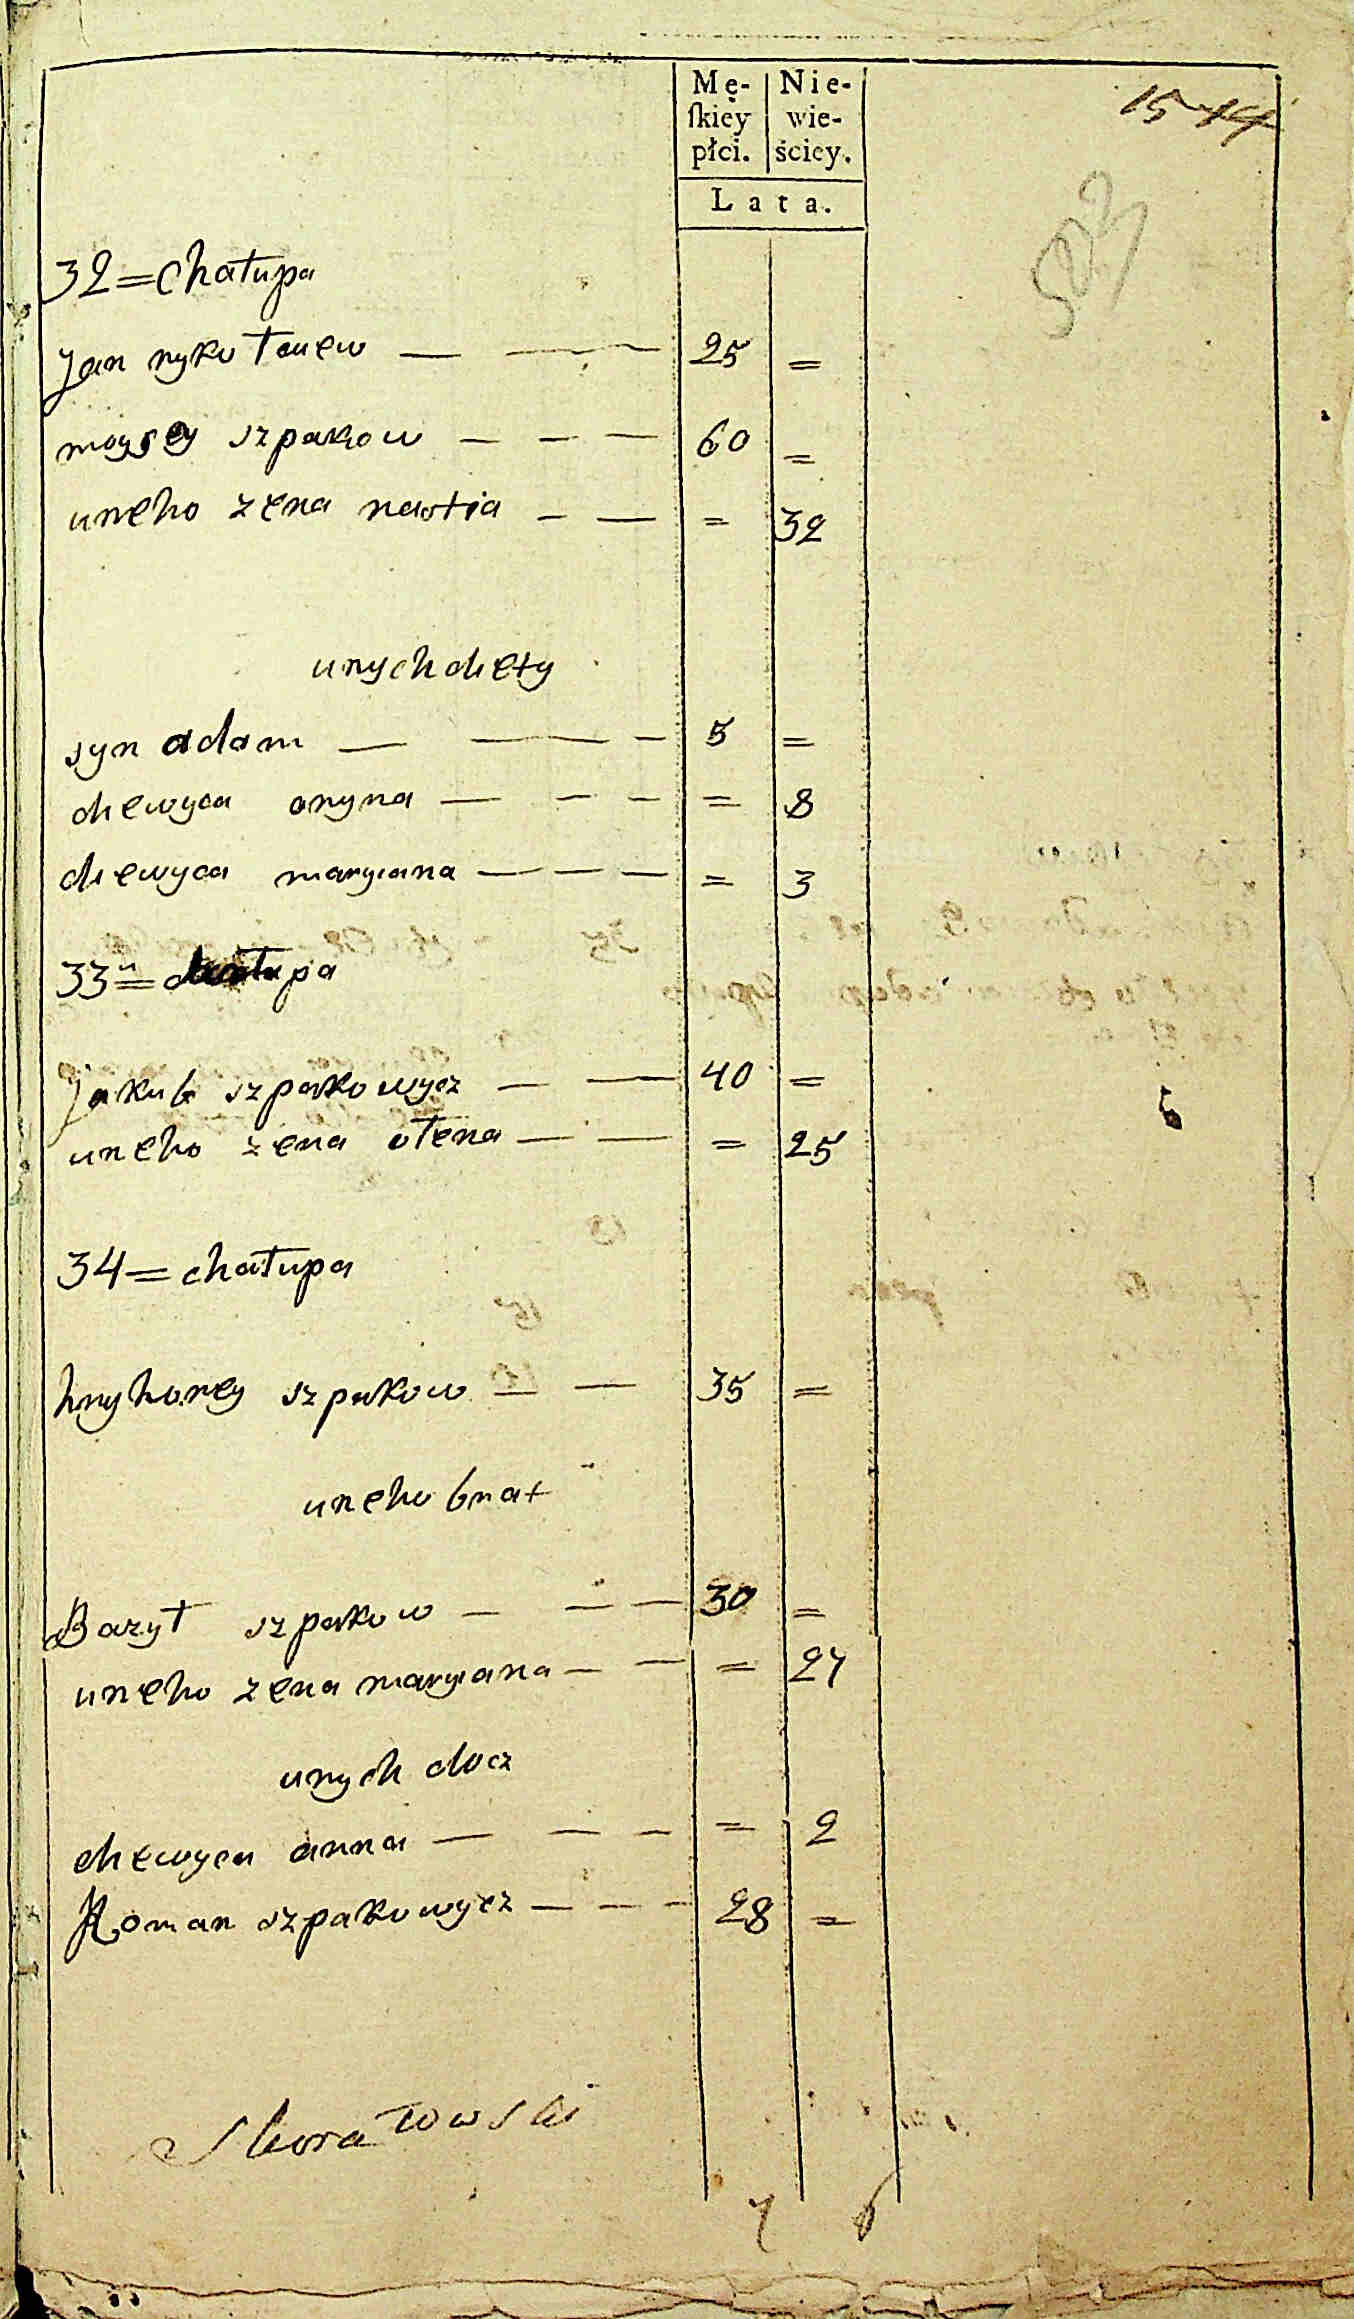 Mę- Nie-
ſkiey wie-
płci. ściey.
Lata.
15 14
32 = chałupa
Jan nykołaiew — — 25 =
moysey szpakow — — — 60 =
uneho zena nastia — — = 32
unych diety
syn adam — — — — 5 =
diewyca oryna — — — = 8
diewyca maryiana — — — = 3
33 = chałupa
Jakub szpakowycz — — 40 =
uneho zena ołena — — = 25
34 = chałupa
hryhorey szpakow — — 35 =
uneho brat
Bazył szpakow — — — 30 =
uneho zena maryiana — — = 27
unych docz
diewyca anna — — — = 2
Roman szpakowycz — — — 28 =
7 6